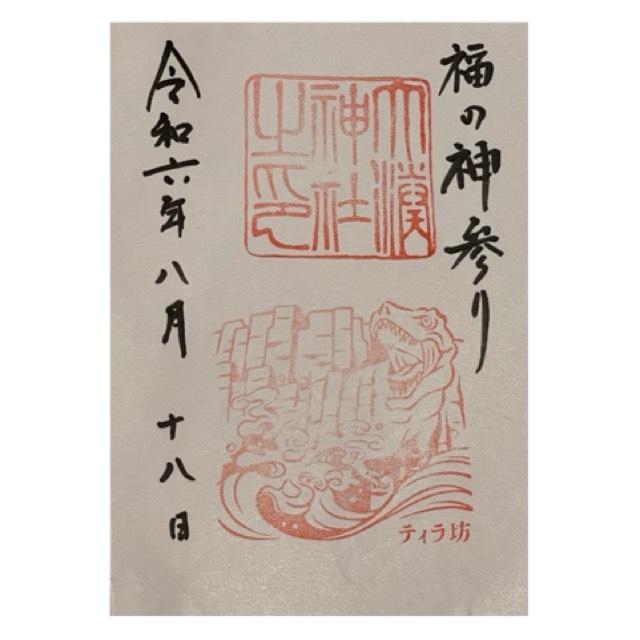 福の神参り
大湊
神社
之印
ティラ坊
令和六年八月十八日